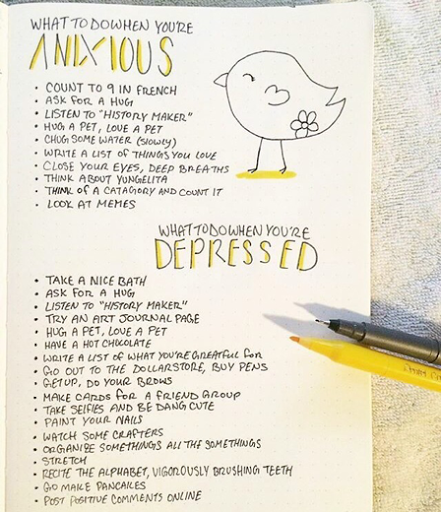 WHAT TO DO WHEN YOU'RE
ANXIOUS
• COUNT TO 9 IN FRENCH
• ASK FOR A HUG
• LISTEN TO "HISTORY MAKER"
• HUG A PET, LOVE A PET
• CHUG SOME WATER (SLOWLY)
• WRITE A LIST OF THINGS YOU LOVE
• CLOSE YOUR EYES, DEEP BREATHS
• THINK ABOUT YUNGELITA
• THINK OF A CATAGORY AND COUNT IT
• LOOK AT MEMES
WHAT TO DO WHEN YOU'RE
DEPRESSED
• TAKE A NICE BATH
• ASK FOR A HUG
• LISTEN TO "HISTORY MAKER"
• TRY AN ART JOURNAL PAGE
• HUG A PET, LOVE A PET
• HAVE A HOT CHOCOLATE
• WRITE A LIST OF WHAT YOU'RE GREATFUL FOR
• GO OUT TO THE DOLLARSTORE, BUY PENS
• GET UP, DO YOUR BROWS
• MAKE CARDS FOR A FRIEND GROUP
• TAKE SELFIES AND BE DANG CUTE
• PAINT YOUR NAILS
• WATCH SOME CRAFTERS
• ORGANIZE SOMETHINGS ALL THE SOMETHINGS
• STRETCH
• RECITE THE ALPHABET, VIGOROUSLY BRUSHING TEETH
• GO MAKE PANCAKES
• POST POSITIVE COMMENTS ONLINE